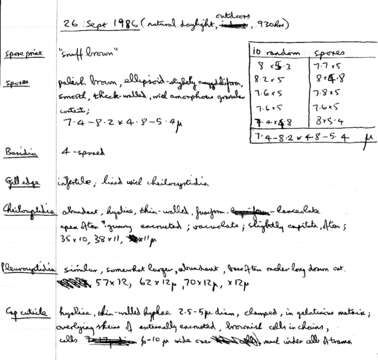 outdoors
26 Sept 1986 (natural daylight, 930hrs)
Spore print "snuff brown"
10 random spores
8 x 5.3 7.7 x 5
8.2 x 5 8 x 4.8
7.6 x 5 7.8 x 5
7.6 x 5 7.6 x 5
7.4 x 4.8 8 x 5.4
7.4-8.2 x 4.8-5.4 µ
Spores palish brown, ellipsoid-slightly amygdaliform,
smooth, thick-walled, with amorphous granular
contents;
7.4-8.2 x 4.8-5.4 µ
Basidia 4-spored
Gill edge infertile, lined with cheilocystidia
Cheilocystidia abundant, hyaline, thin-walled, fusiform - lanceolate
apex often "gummy" encrusted; vacuolate; slightly capitate often;
35 x 10, 38 x 11, x 11µ
Pleurocystidia similar, somewhat larger, abundant, base often rather long drawn out.
57 x 12, 62 x 12µ, 70 x 12µ, x 12µ
Cap cuticle hyaline, thin-walled hyphae 2.5-5µ diam, clamped, in gelatinous matrix;
overlying of externally encrusted, brownish cells in chains,
cells 6-10µ wide over and under cells of trama